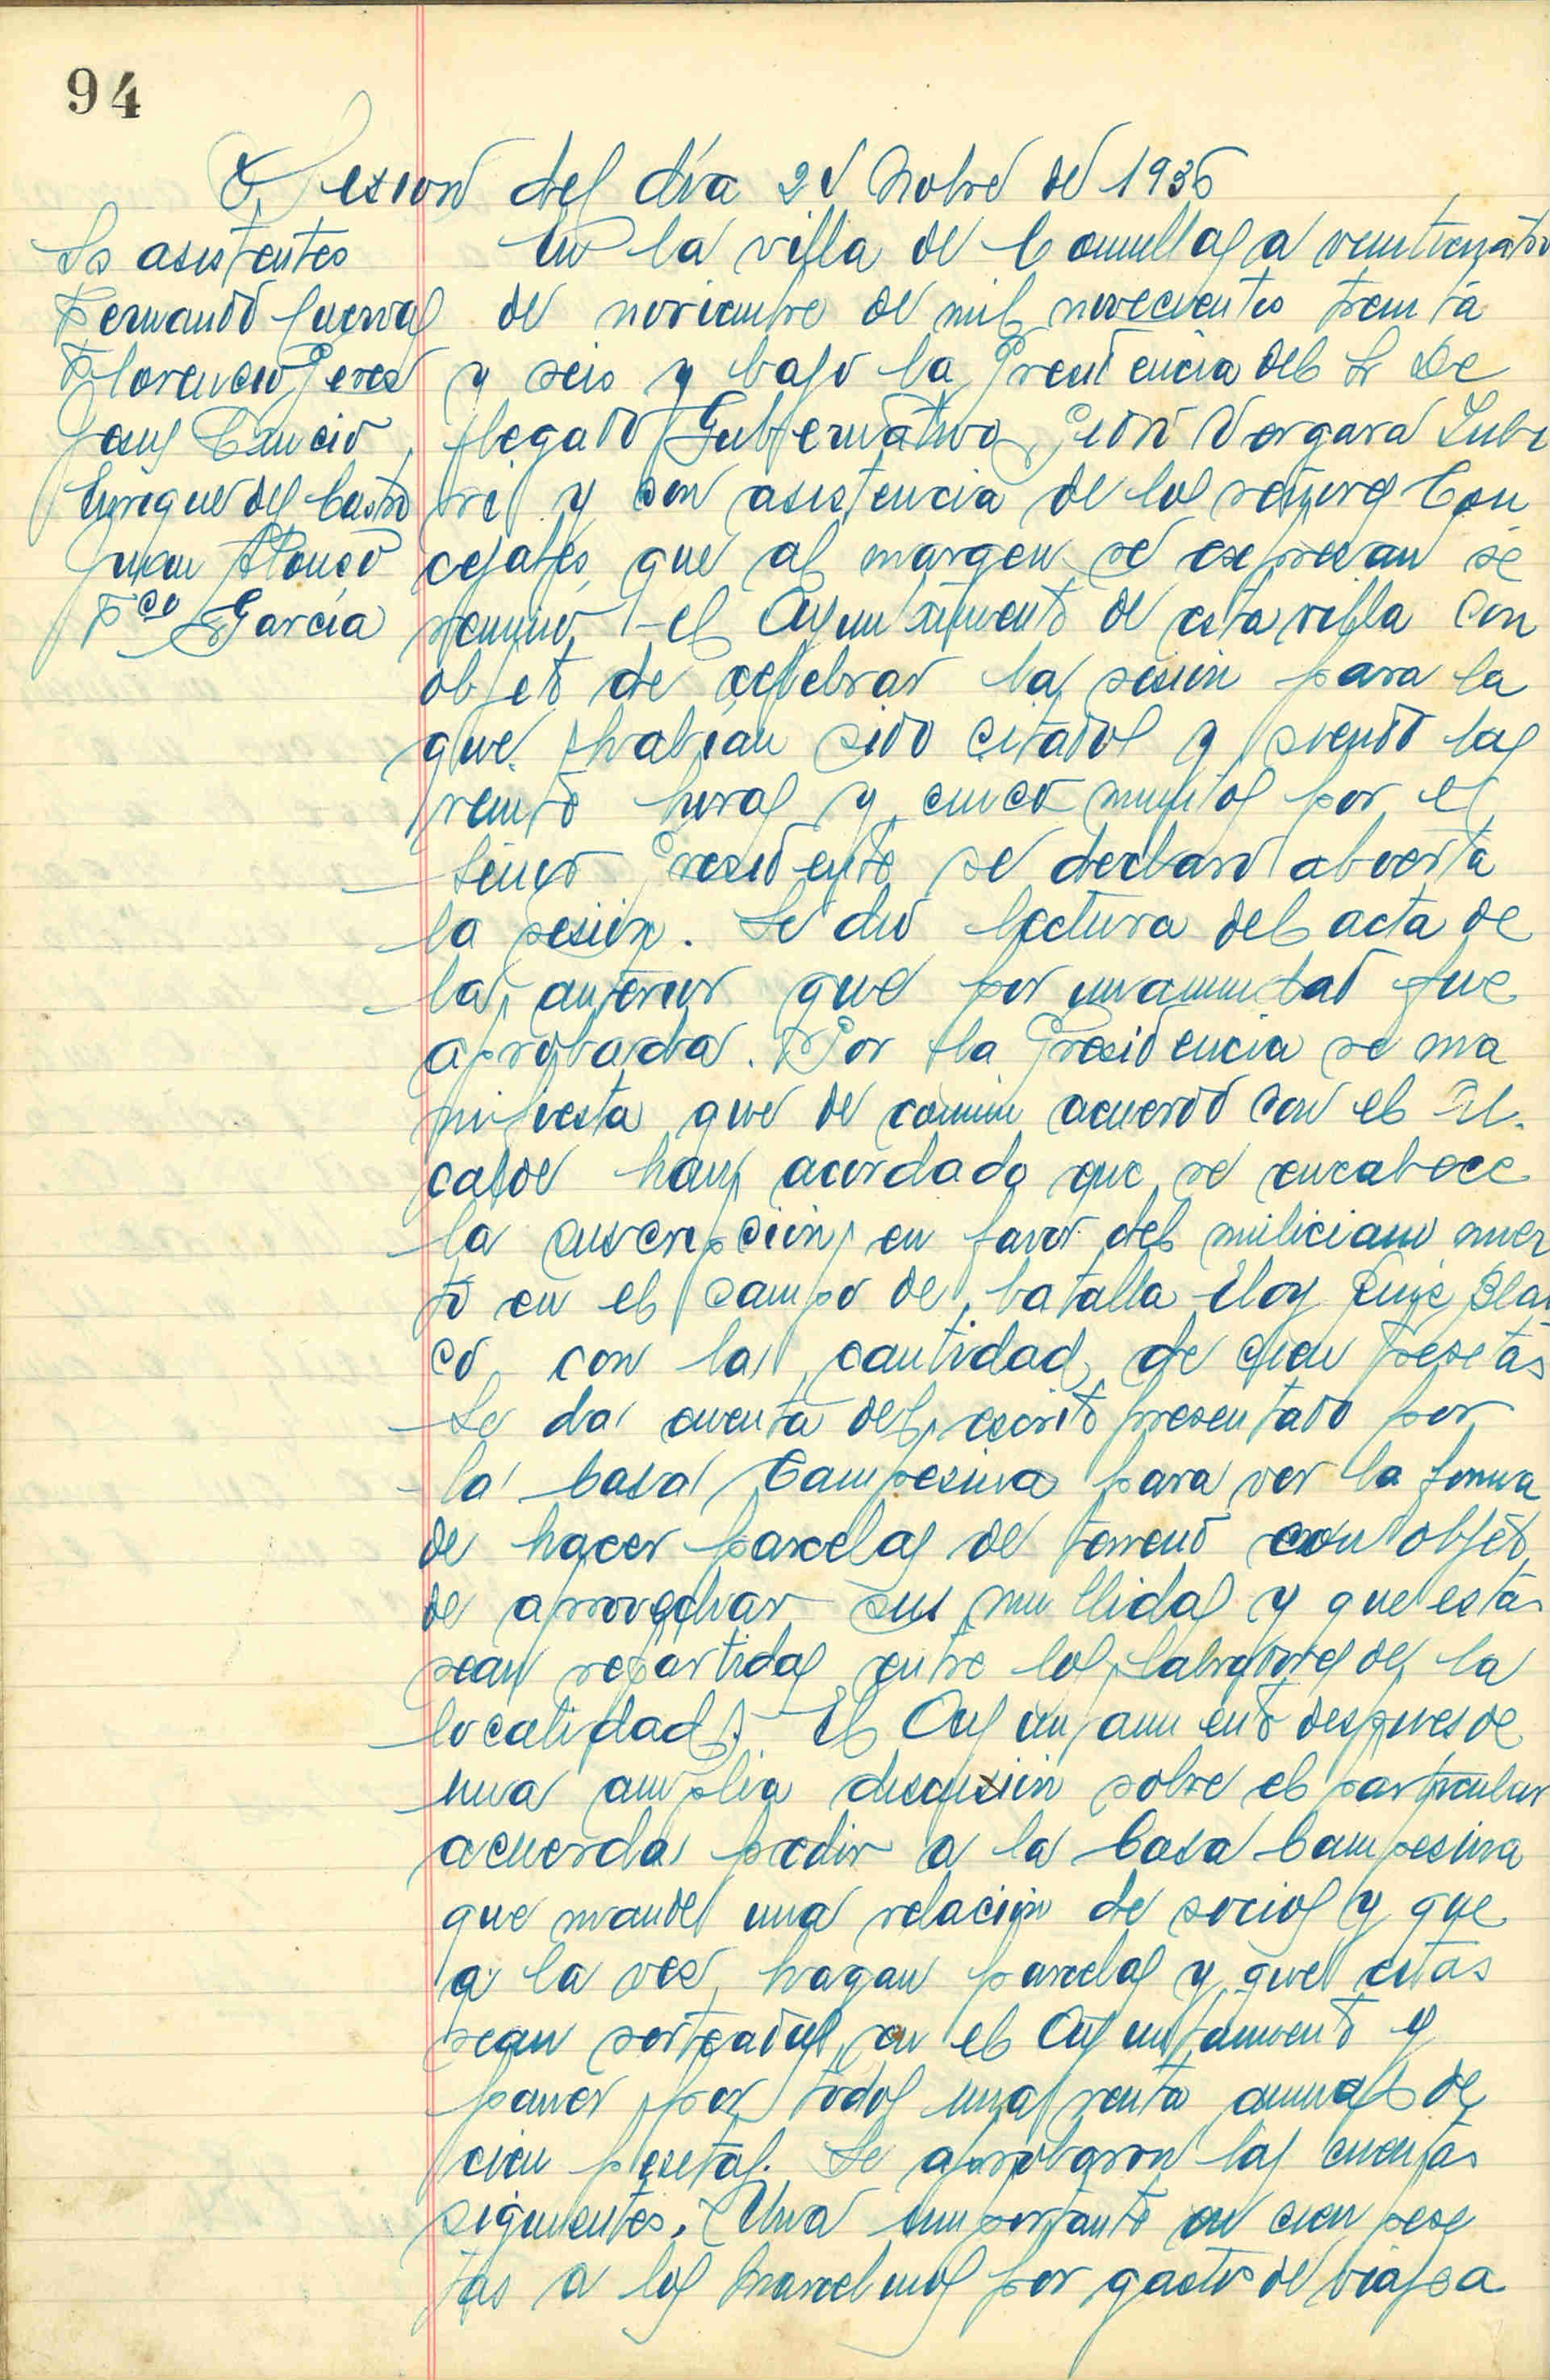 94
Sesion del día 24 Novbre de 1936
Srs asistentes
Fernando Cuevas
Florencio Perez
Jesus Cancio
Enrique del Castro
Juan Alonso
Fco Garcia
En la villa de Comillas a veinticuatro
de noviembre de mil novecientos treinta
y seis y bajo la Presidencia del Sr De
legado Gubernativo Pedro Vergara Zubi
ri y con asistencia de los señores Con
cejales que al margen se expresan se
reunió el Ayuntamiento de esta villa con
objeto de celebrar la sesión para la
que habían sido citados y siendo las
veinte horas y cinco minutos por el
Señor Presidente se declaró abierta
la sesión. Se dió lectura del acta de
la anterior que por unanimidad fue
aprobada. Por la Presidencia se ma
nifiesta que de común acuerdo con el Al-
calde han acordado que se encabece
la suscripción en favor del miliciano muer
to en el campo de batalla Eloy Ruiz Blan
co con la cantidad de cien pesetas
Se da cuenta del escrito presentado por
la Casa Campesina para ver la forma
de hacer parcelas de terreno con objeto
de aprovechar sus mullidas y que estas
sean repartidas entre los labradores de la
localidad. El Ayuntamiento despues de
una amplia discusión sobre el particular
acuerda pedir a la Casa Campesina
que mande una relación de socios y que
a la vez hagan parcelas y que estas
sean sorteadas en el Ayuntamiento y
paner por todos una renta annual de
cien pesetas. Se aprobaron las cuentas
siguientes. Una importante en cien pese
tas a los Marcelinos por gastos de viaje a